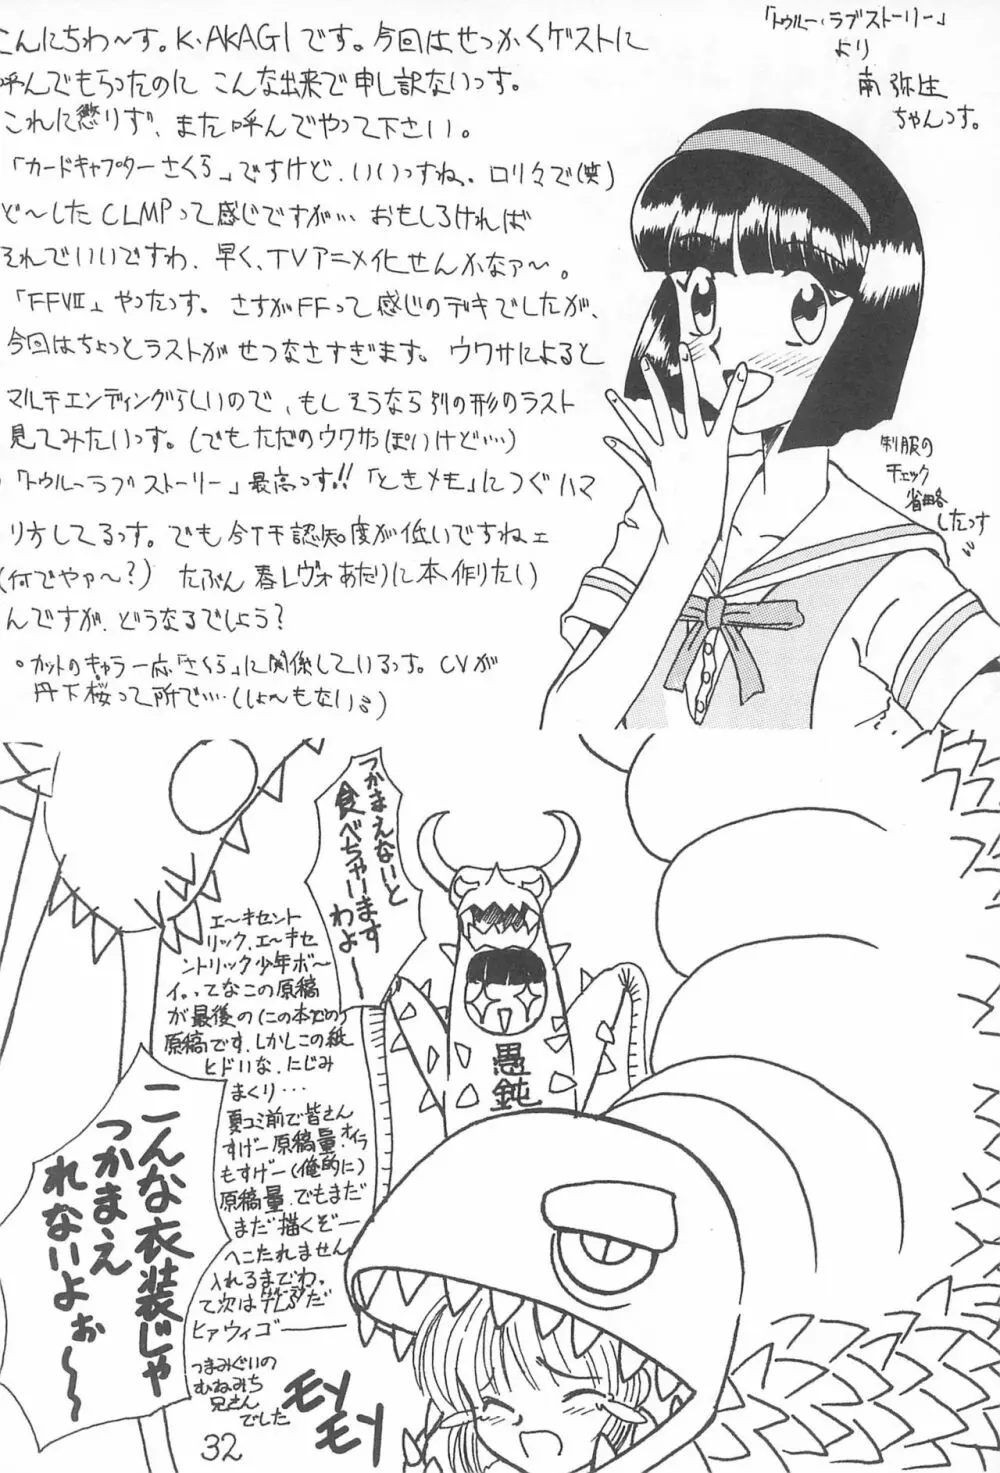 こんにちわ〜す。K・AKAGIです。今回はせっかくゲストに
呼んでもらったのに こんな出来で申し訳ないっす。
これに懲りず、また呼んでやって下さい。
「カードキャプターさくら」ですけど、いいっすね、ロリ々で(笑)
ど〜したCLMPって感じですが… おもしろければ
それでいいですわ、早く、TVアニメ化せんかなァ〜。
「FFⅦ」やったっす。さすがFFって感じのデキでしたが、
今回はちょっとラストがせつなさすぎます。ウワサによると
マルチエンディングらしいので、もしそうなら別の形のラスト
見てみたいっす。(でもただのウワサっぽいけど……)
「トゥルーラブストーリー」最高っす!!「ときメモ」につぐハマ
リ方してるっす。でも今イチ認知度が低いですねェ
(何でやァ〜?) たぶん春レヴォあたりに本作りたい
んですが、どうなるでしょう?
。カットのキャラ一応「さくら」に関係しているっす。CVが
丹下桜って所で…(しょ〜もない)
「トゥルー・ラブストーリー」
より
南弥生
ちゃんっす。
制服の
チェック
省略
したっす
つかまえないと
食べちゃいます
わよ〜
愚鈍
エ〜キセント
リック、エ〜キセ
ントリック少年ボ〜
イ。ってなこの原稿
が最後の(この本での)
原稿です。しかしこの紙
ヒドいな、にじみ
まくり…
夏コミ前で皆さん
すげー原稿量、オイラ
もすげー(俺的に)
原稿量、でもまだ
まだ描くぞー
へこたれません
入れるまでわ。
て次はデレぷだ
ヒァウィゴー
つまみぐいの
むねみち
兄さん
でした
こんな衣装じゃ
つかまえ
れないよぉ〜
モソ
モソ
32